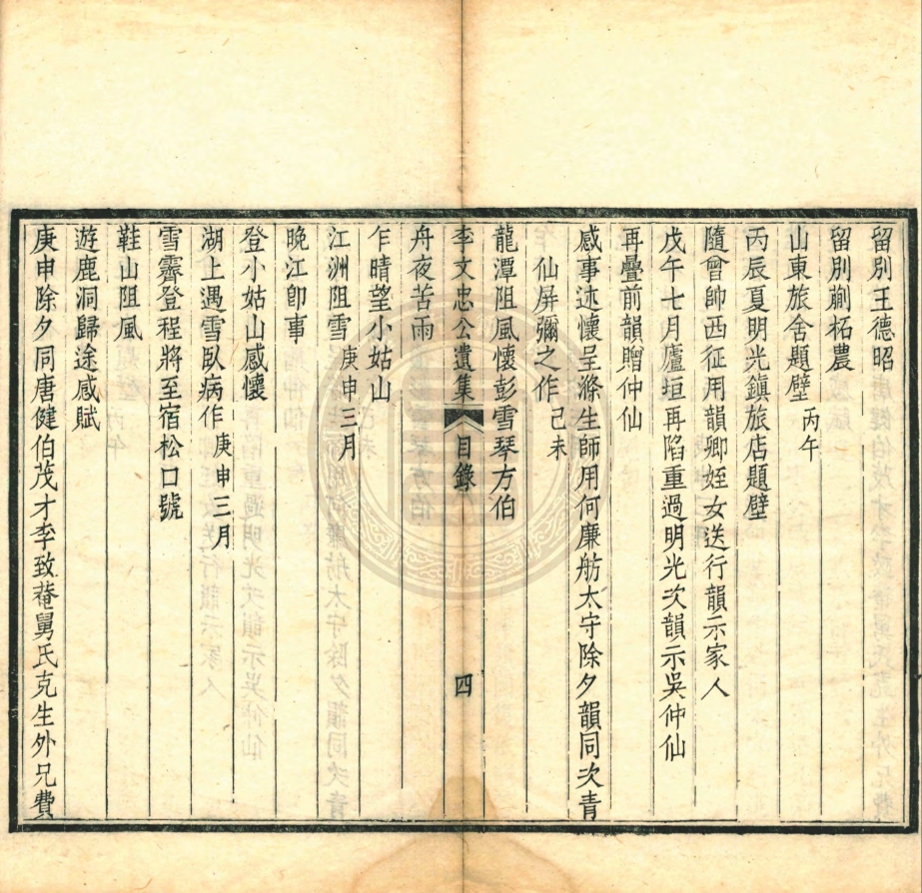 留別王德昭
留別蒯柘農
山東旅舍題壁丙午
丙辰夏明光鎮旅店題壁
隨曾帥西征用韻卿姪女送行韻示家人
戊午七月廬垣再陷重過明光次韻示吳仲仙
再疊前韻贈仲仙
感事述懷呈滌生師用何廉舫太守除夕韻同次青
仙屏彌之作己未
龍潭阻風懷彭雪琴方伯
李文忠公遺集 目錄 四
舟夜苦雨
乍晴望小姑山
江洲阻雪庚申三月
晚江卽事
登小姑山感懷
湖上遇雪臥病作庚申三月
雪霽登程將至宿松口號
鞋山阻風
遊鹿洞歸途感賦
庚申除夕同唐健伯茂才李致菴舅氏克生外兄費